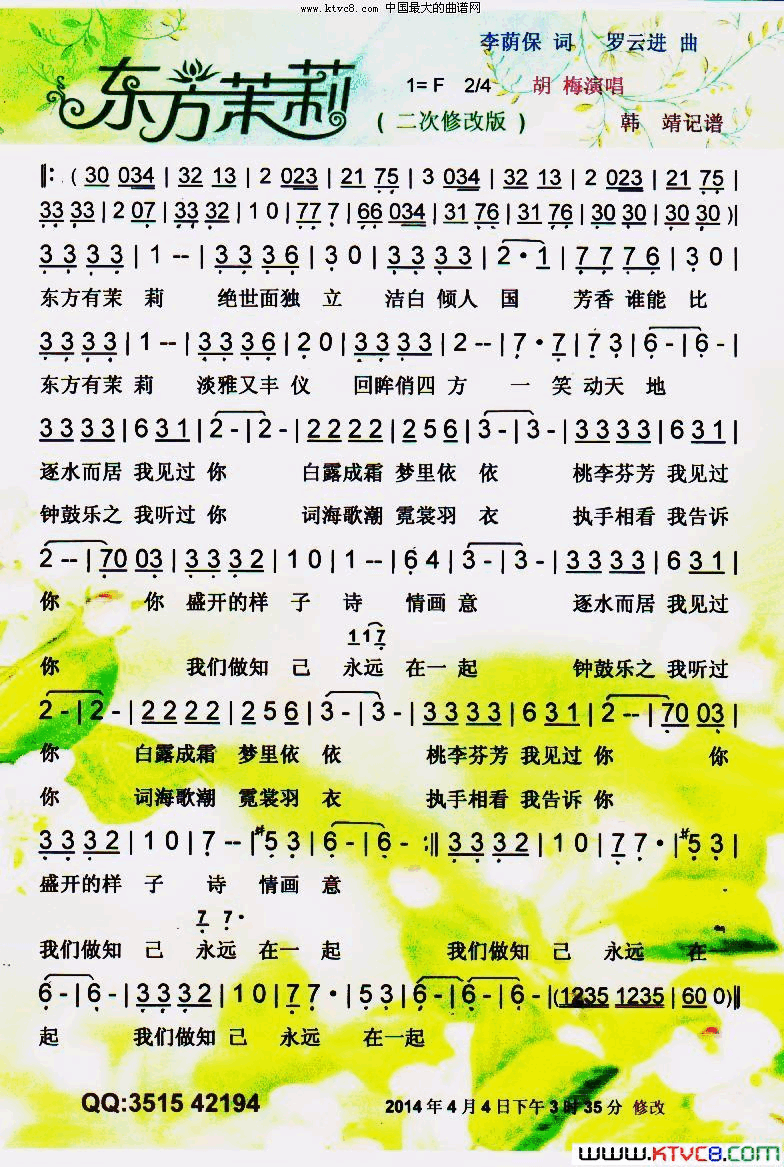 www.ktvc8.com 中国最大的曲谱网
李荫保 词 罗云进 曲
东方茉莉
1= F 2/4 胡 梅演唱
( 二次修改版 ) 韩 靖记谱
‖: ( 30 034 | 32 13 | 2 023 | 21 75 | 3 034 | 32 13 | 2 023 | 21 75 |
33 33 | 2 07 | 33 32 | 1 0 | 77 7 | 66 034 | 31 76 | 31 76 | 30 30 | 30 30 )|
3 3 3 3 | 1 -- | 3 3 3 6 | 3 0 | 3 3 3 3 | 2 · 1 | 7 7 7 6 | 3 0 |
东方有茉 莉 绝世面独 立 洁白 倾人 国 芳香 谁能 比
3 3 3 3 | 1 -- | 3 3 3 6 | 2 0 | 3 3 3 3 | 2 -- | 7 · 7 | 7 3 | 6 - | 6 - |
东方有茉 莉 淡雅又丰 仪 回眸俏四 方 一 笑 动天 地
3 3 3 3 | 6 3 1 | 2 - | 2 - | 2 2 2 2 | 2 5 6 | 3 - | 3 - | 3 3 3 3 | 6 3 1 |
逐水而居 我见过 你 白露成霜 梦里依 依 桃李芬芳 我见过
钟鼓乐之 我听过 你 词海歌潮 霓裳羽 衣 执手相看 我告诉
2 -- | 70 03 | 3 3 3 2 | 1 0 | 1 -- | 6 4 | 3 - | 3 - | 3 3 3 3 | 6 3 1 |
你 你 盛开的样 子 诗 情画 意 逐水而居 我见过
1 1 7
你 我们做知 己 永远 在一 起 钟鼓乐之 我听过
2 - | 2 - | 2 2 2 2 | 2 5 6 | 3 - | 3 - | 3 3 3 3 | 6 3 1 | 2 -- | 70 03 |
你 白露成霜 梦里依 依 桃李芬芳 我见过 你 你
你 词海歌潮 霓裳羽 衣 执手相看 我告诉 你
3 3 3 2 | 1 0 | 7 -- | #5 3 | 6 - | 6 - :‖ 3 3 3 2 | 1 0 | 7 7 · | #5 3 |
盛开的样 子 诗 情画 意
7 7 ·
我们做知 己 永远 在一 起 我们做知 己 永远 在一
6 - | 6 - | 3 3 3 2 | 1 0 | 7 7 · | 5 3 | 6 - | 6 - | 6 - | (1235 1235 | 60 0)‖
起 我们做知 己 永远 在一起
QQ:3515 42194 2014 年 4 月 4 日下午 3 时 35 分 修改
www.KTVC8.com